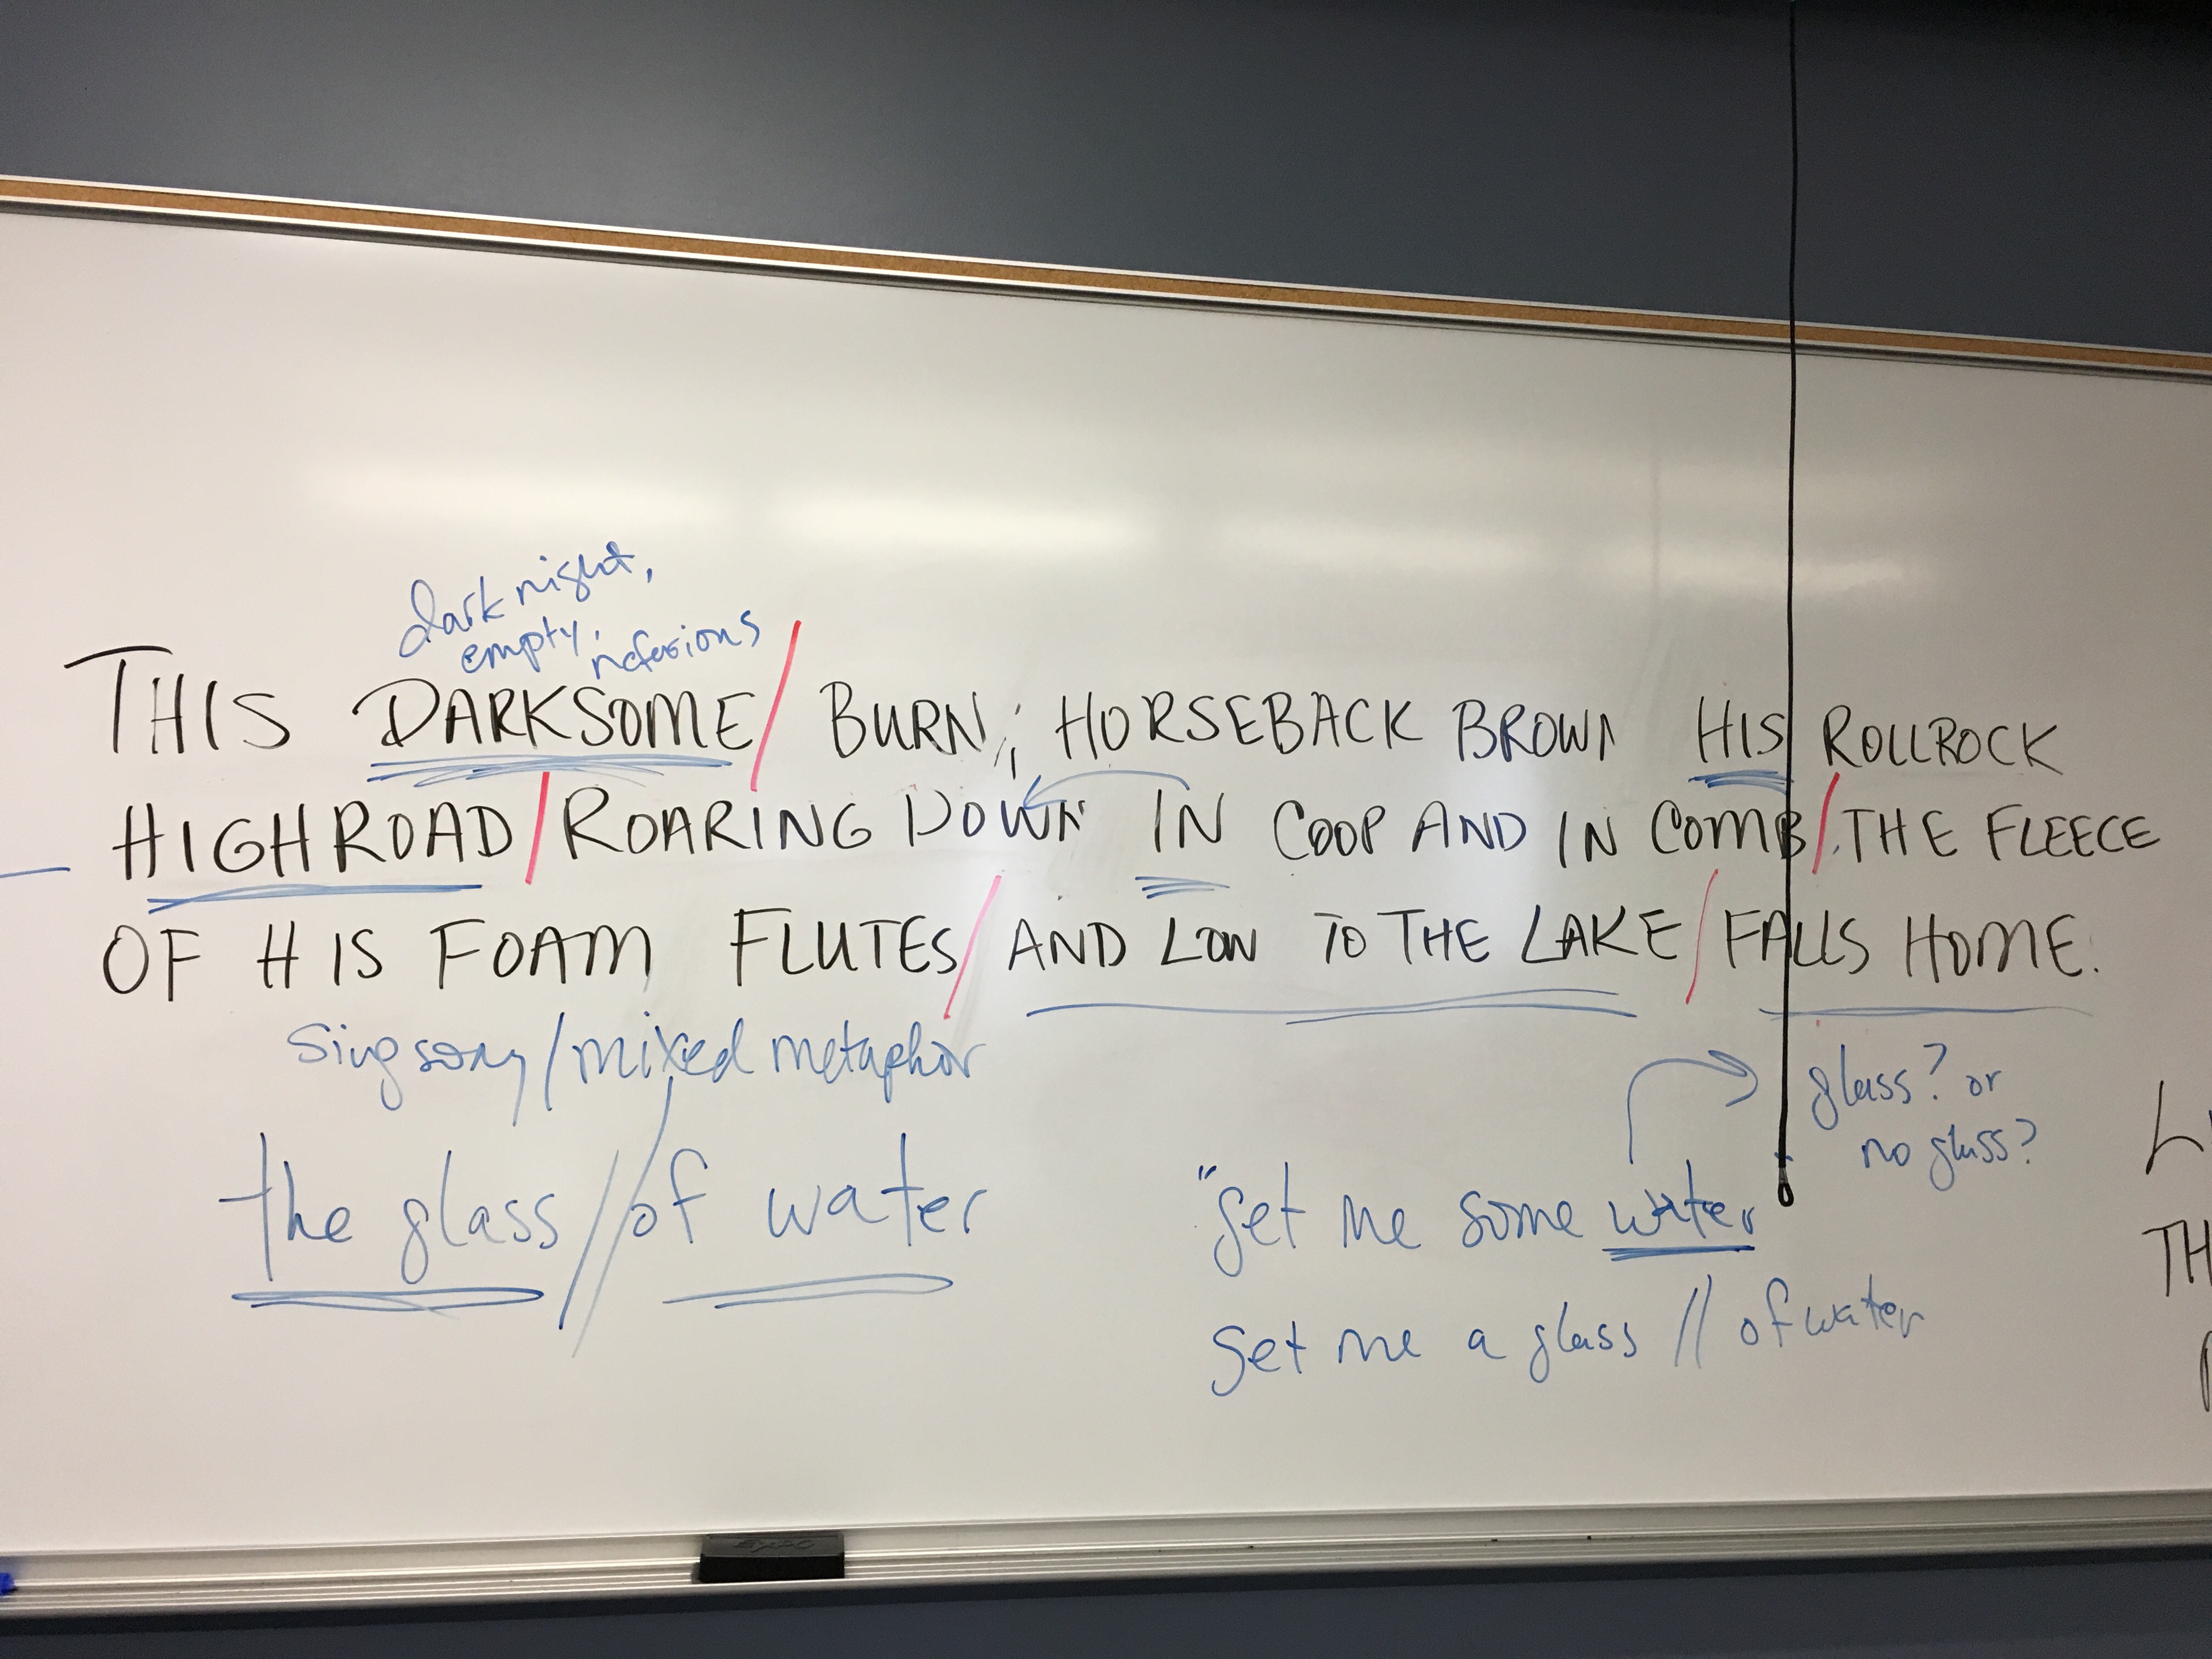 dark night,
empty, nefarious
THIS DARKSOME / BURN, HORSEBACK BROWN HIS ROLLROCK
HIGHROAD / ROARING DOWN IN COOP AND IN COMB / THE FLEECE
OF HIS FOAM FLUTES / AND LOW TO THE LAKE / FALLS HOME.
Singsong / mixed metaphor
glass? or
no glass?
the glass // of water
"get me some water
get me a glass // of water
L
TH
EXPO